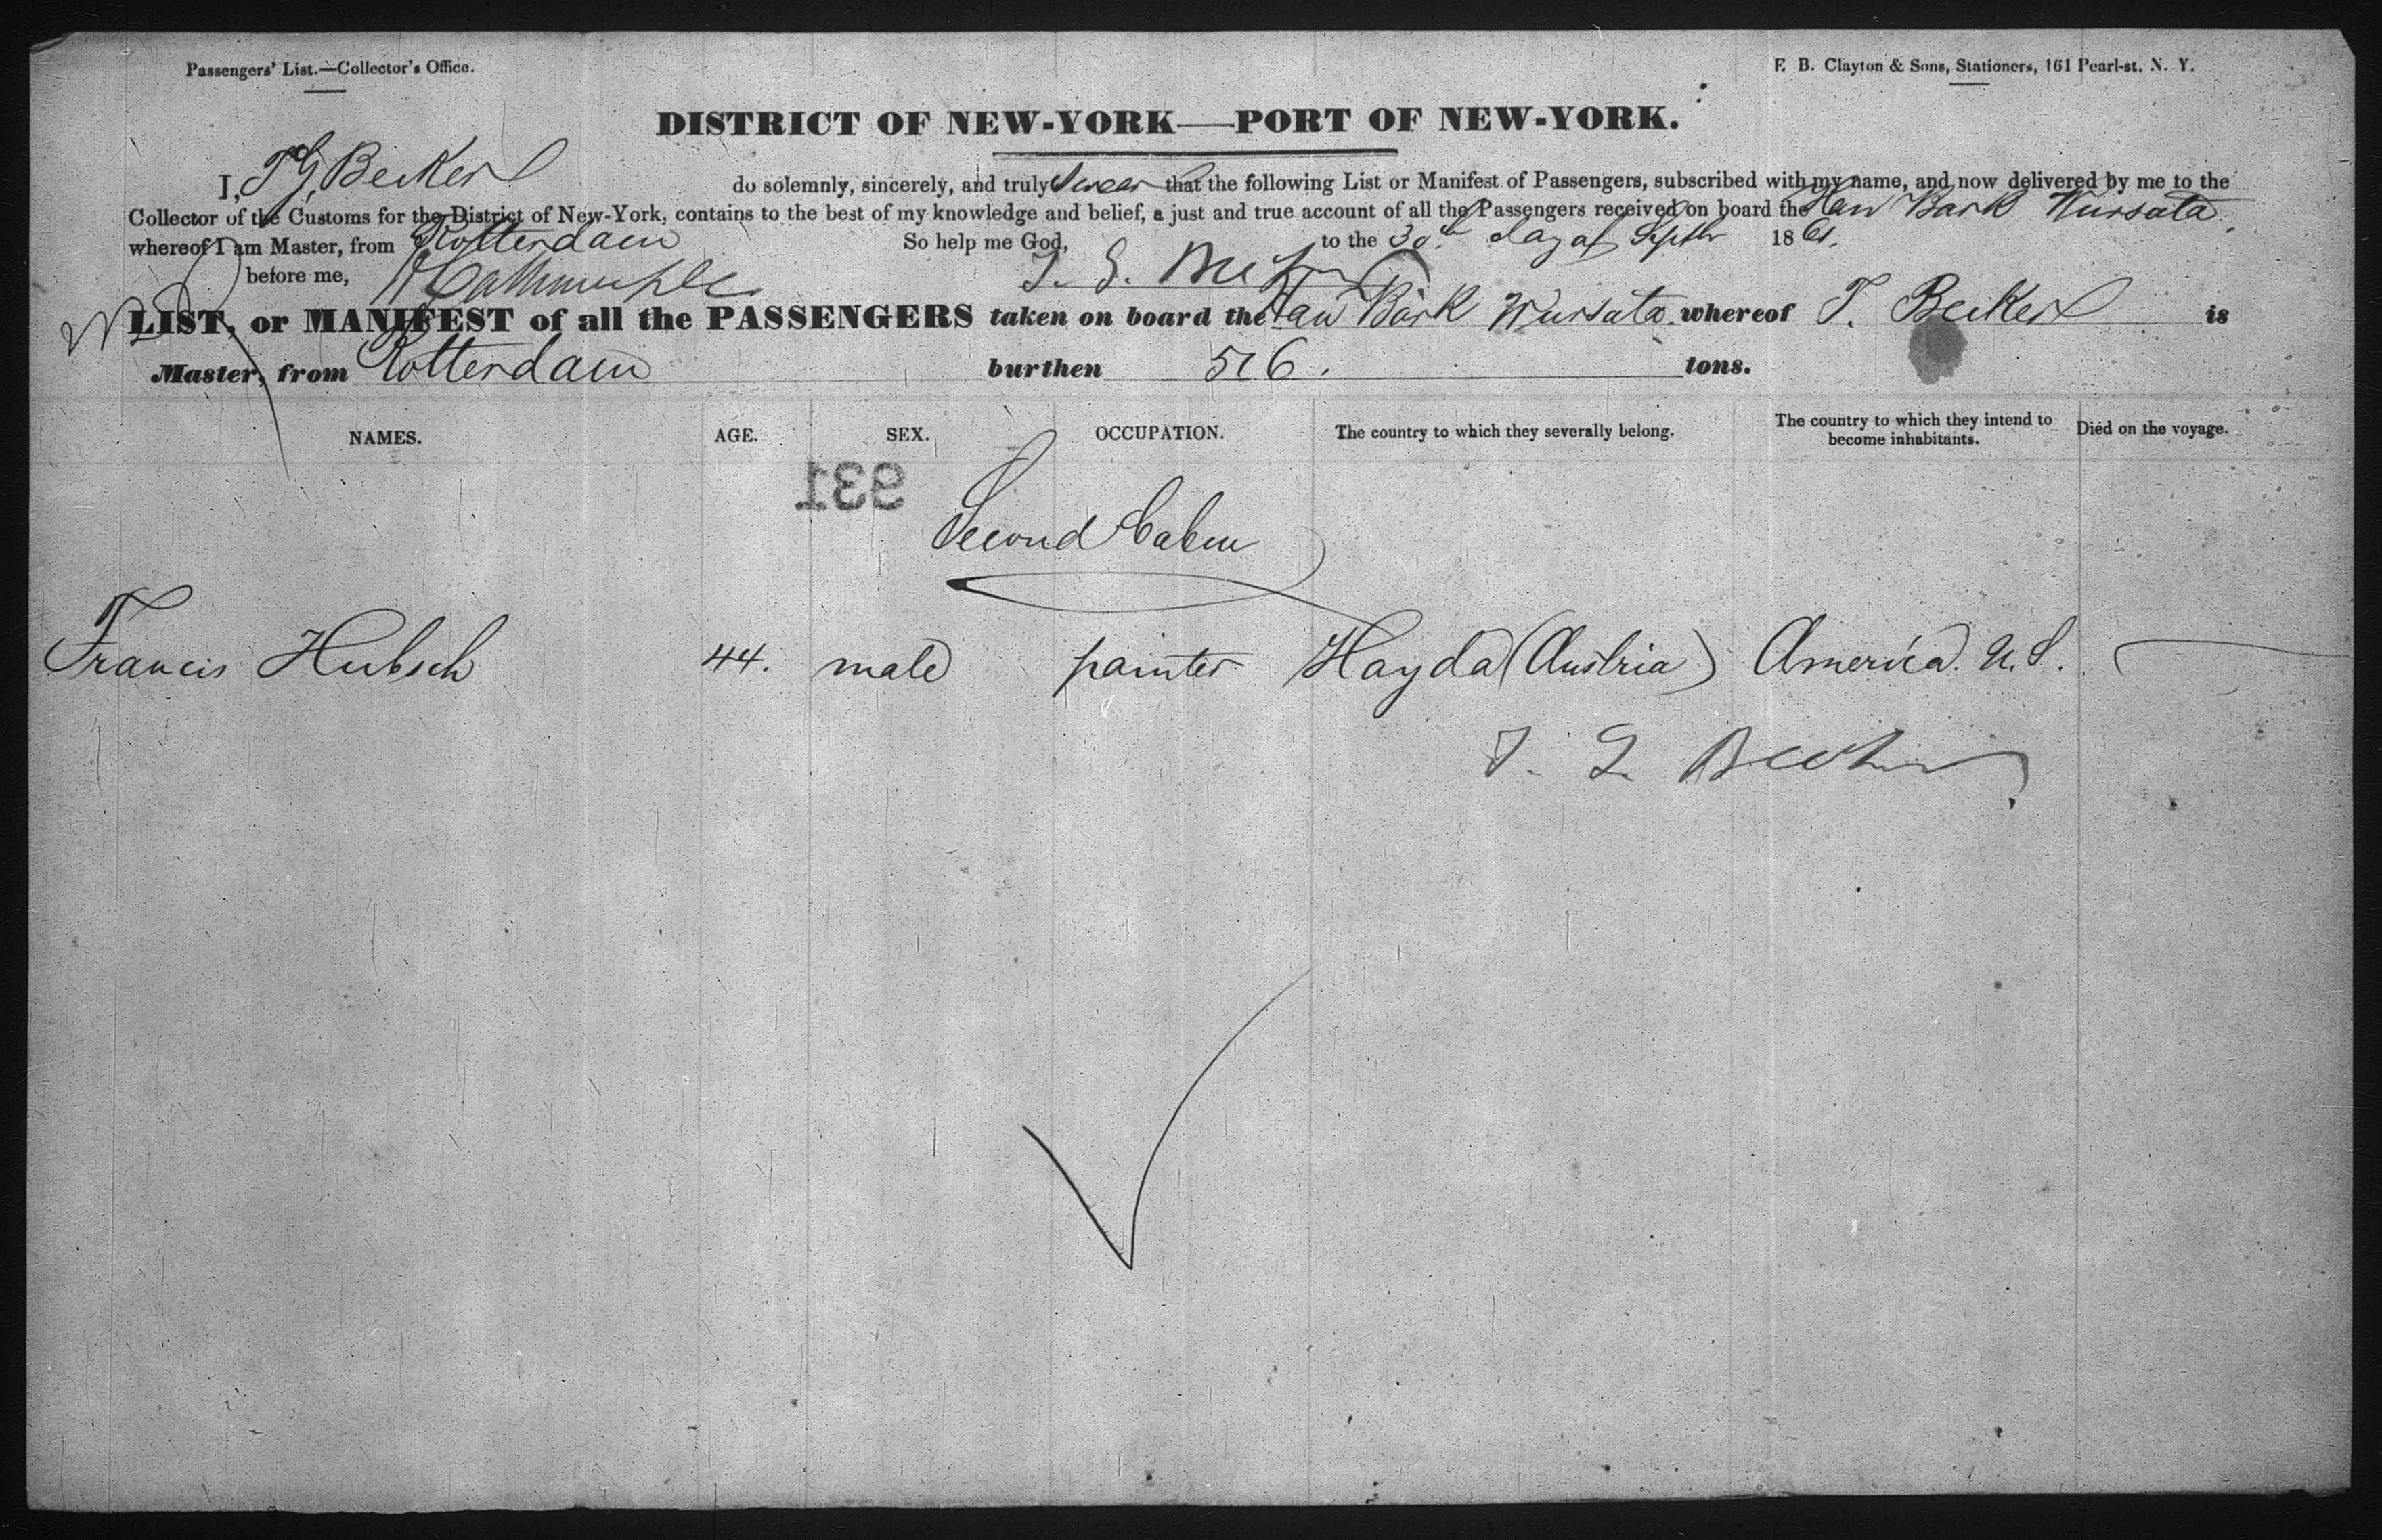 Passengers' List.—Collector's Office.
F. B. Clayton & Sons, Stationers, 161 Pearl-st. N. Y.
DISTRICT OF NEW-YORK—PORT OF NEW-YORK.
I, T G Becker do solemnly, sincerely, and truly Swear that the following List or Manifest of Passengers, subscribed with my name, and now delivered by me to the
Collector of the Customs for the District of New-York, contains to the best of my knowledge and belief, a just and true account of all the Passengers received on board the Han Bark Wursata
whereof I am Master, from Rotterdam So help me God, to the 30th day of Septbr 1861.
before me,
LIST, or MANIFEST of all the PASSENGERS taken on board the Han Bark Wursata whereof T. Becker is
Master, from Rotterdam burthen 516. tons.
NAMES. AGE. SEX. OCCUPATION. The country to which they severally belong. The country to which they intend to become inhabitants. Died on the voyage.
931
Second Cabin
Francis Hubsch 44. male painter Hayda (Austria) America U.S.
T. G. Becker